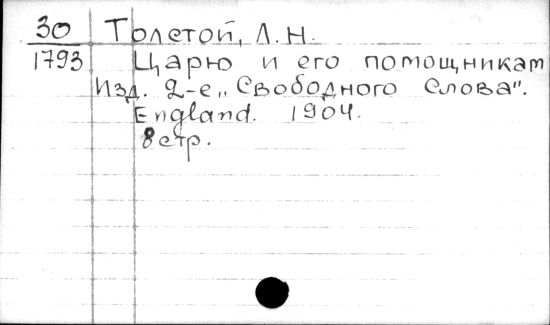 30 Толстой, Л.Н.
1793 Царю и его помощникам
Изд. 2-е „Свободного Слова".
England. 1904.
8 стр.